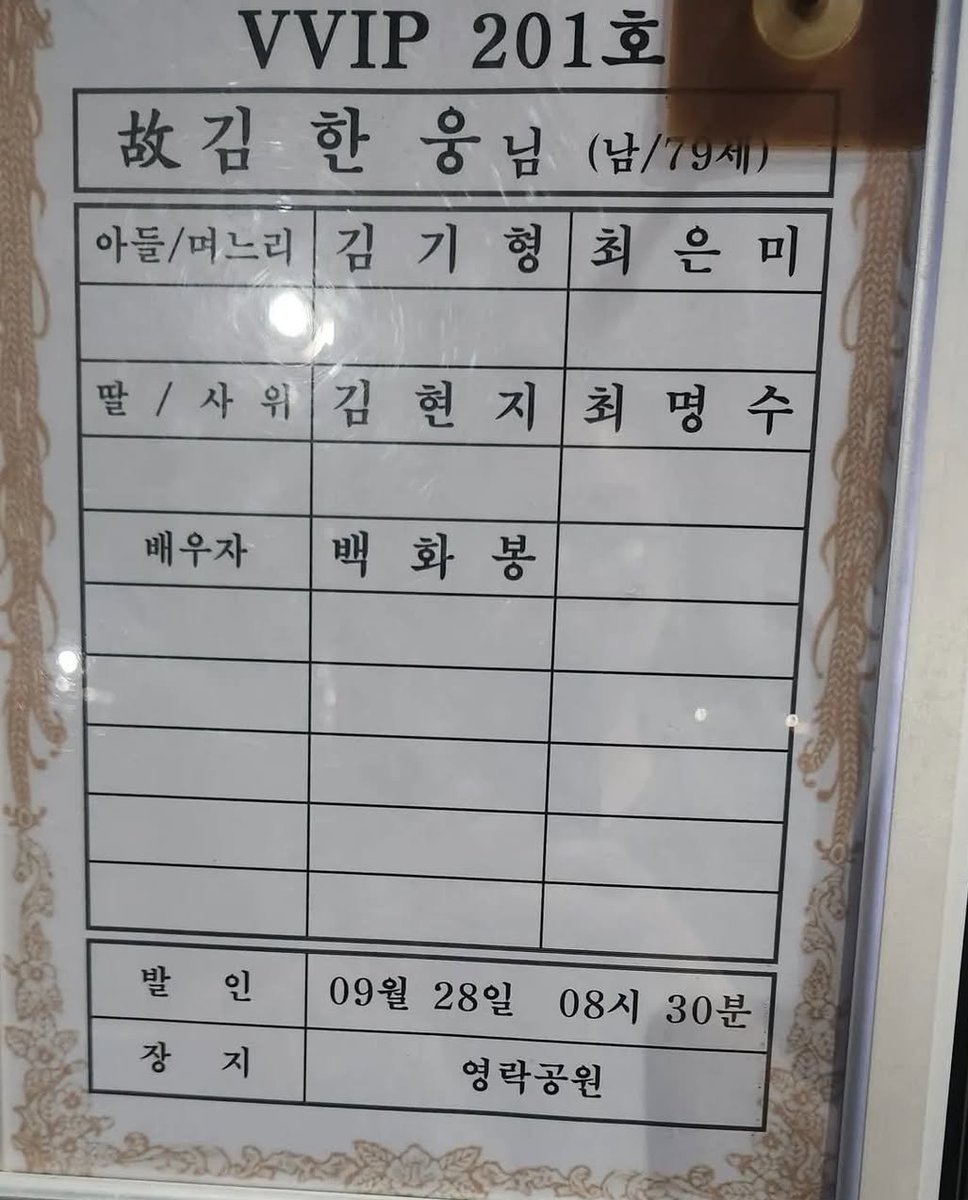 VVIP 201호
故김 한 웅님 (남/79세)
아들/며느리 김 기 형 최 은 미
딸 / 사 위 김 현 지 최 명 수
배우자 백 화 봉
발 인 09월 28일 08시 30분
장 지 영락공원